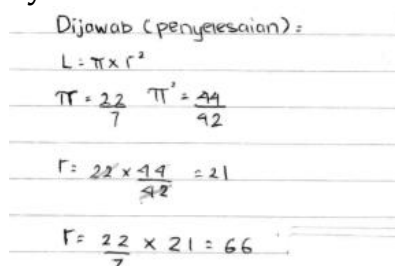 Dijawab (penyelesaian) =
L = π x r²
π = 22/7 π² = 44/42
r = 22 x 44/42 = 21
r = 22/7 x 21 = 66